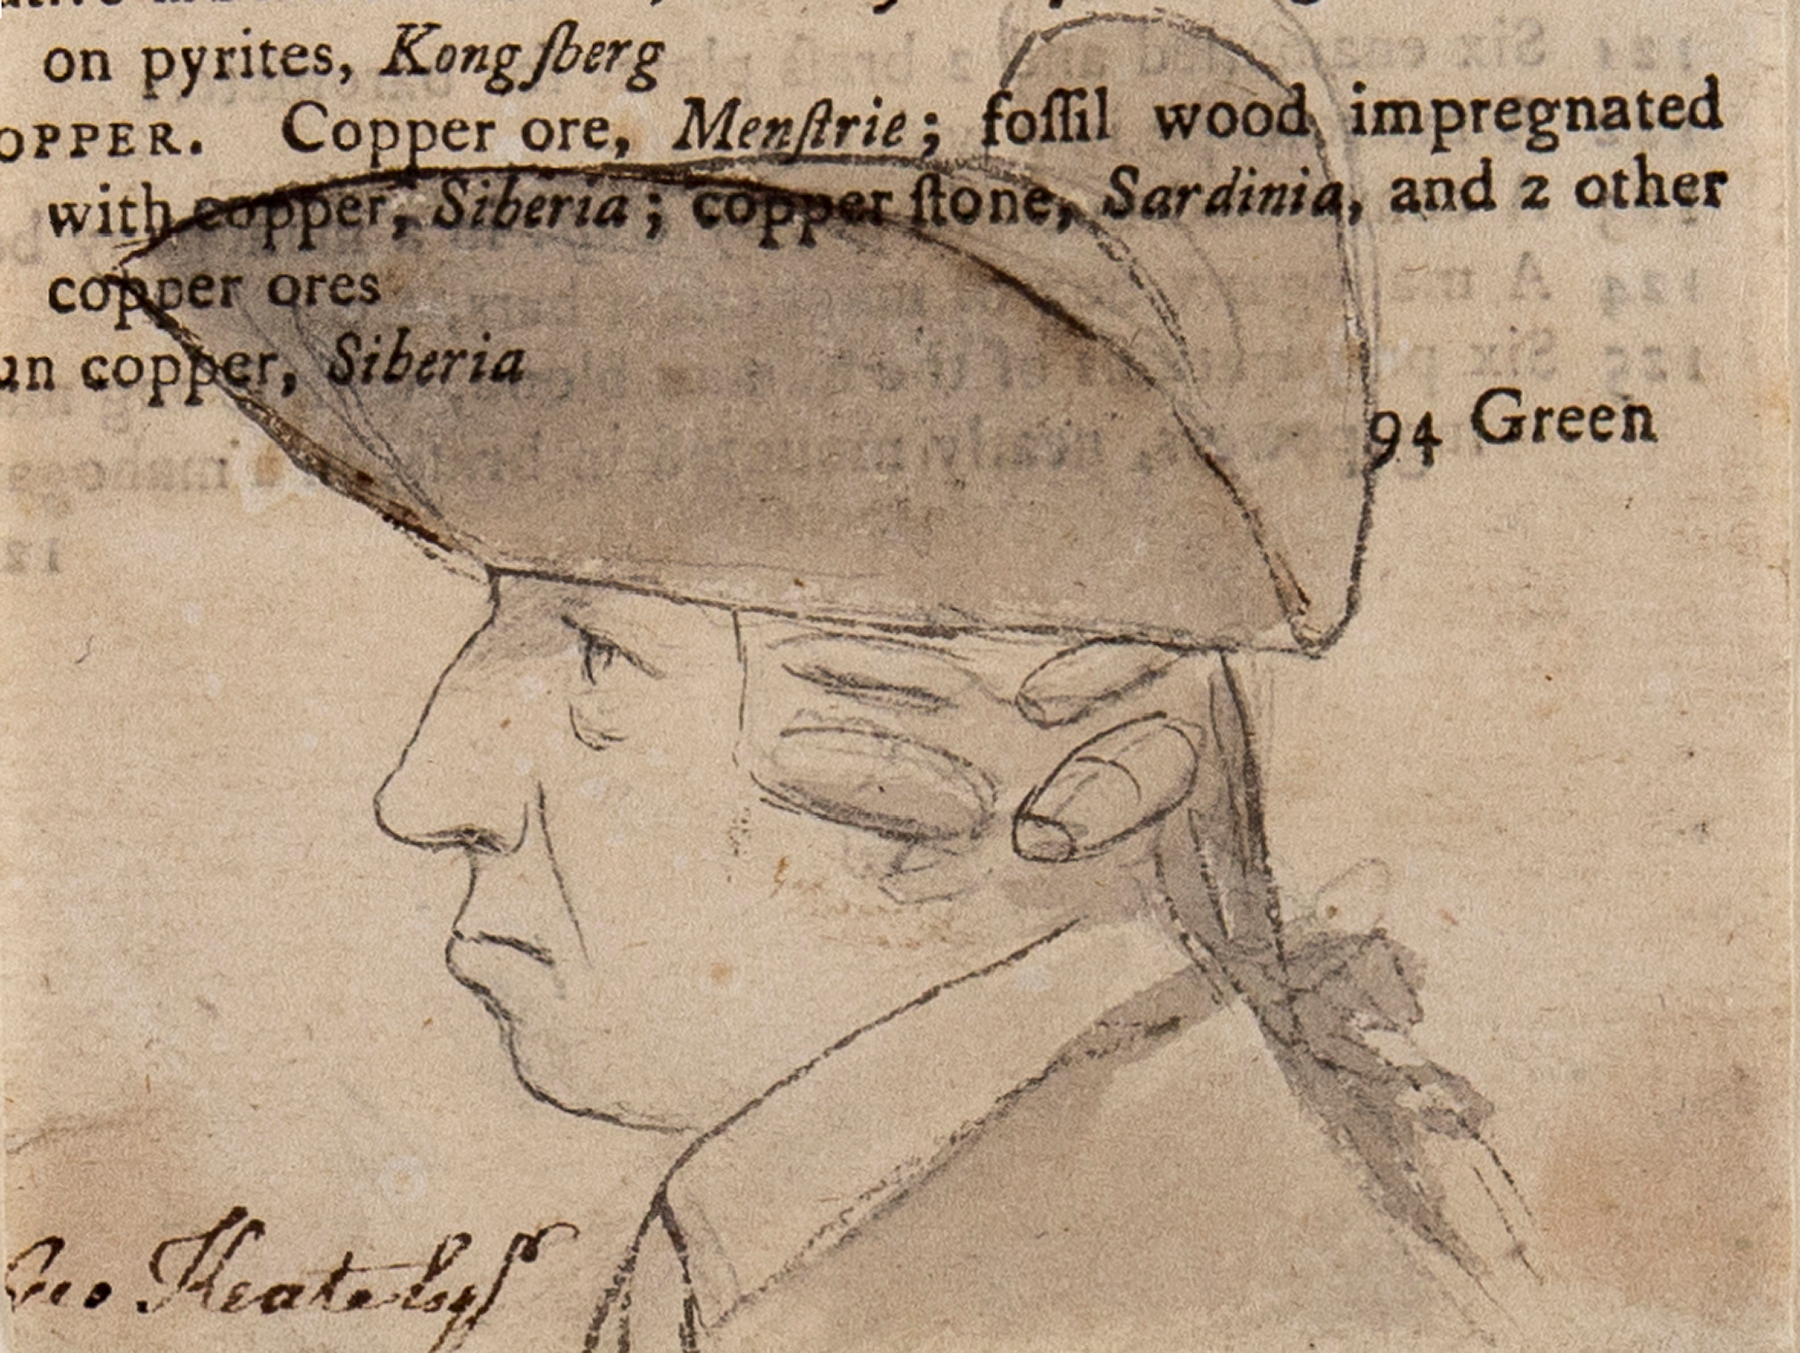 on pyrites, Kongſberg
OPPER. Copper ore, Menſtrie; foſſil wood impregnated
with copper, Siberia; copper ſtone, Sardinia, and 2 other
copper ores
un copper, Siberia
94 Green
Geo Keate Esqr